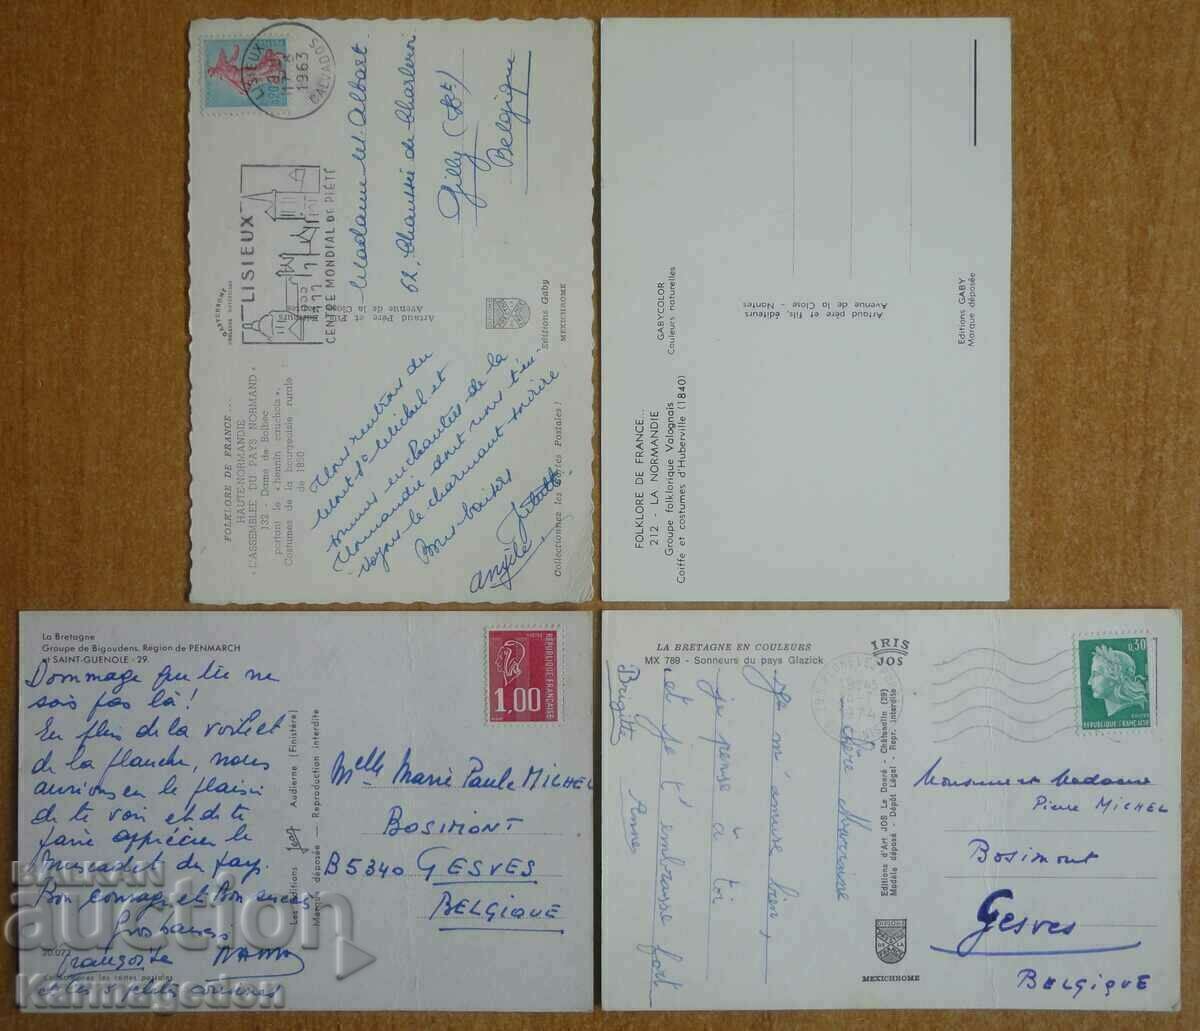 LISIEUX
1963
CALVADOS
LISIEUX
CENTRE MONDIAL DE PIÉTÉ
Madame M. Albart
62, Chaussée de Charleroi
Gilly (Bt)
Belgique
Artaud Père et Fils, éditeurs
Avenue de la Close - Nantes
Editions Gaby
MEXICHROME
FOLKLORE DE FRANCE...
HAUTE-NORMANDIE
« L'ASSEMBLÉE DU PAYS NORMAND »
132 - Dame de Bolbec
portant le « hennin cauchois ».
Costumes de la bourgeoisie rurale
de 1850
Collectionnez les Cartes Postales !
Nous rentrons du
Mont St Michel et
sommes enchantées de la
Normandie dont nous t'en-
voyons le charmant sourire
Bons baisers
Angèle
FOLKLORE DE FRANCE...
212 - LA NORMANDIE
Groupe folklorique Valognais
Coiffe et costumes d'Huberville (1840)
GABYCOLOR
Couleurs naturelles
Artaud père et fils, éditeurs
Avenue de la Close - Nantes
Editions GABY
Marque déposée
La Bretagne
Groupe de Bigoudens, Région de PENMARCH
et SAINT-GUENOLE - 29.
Dommage que tu ne
sois pas là !
En plus de la voile et
de la planche, nous
aurions eu le plaisir
de te voir et de te
faire apprécier le
muscadet du pays.
Bon courage et Bon succès
Gros baisers
Françoise
et les 3 petits cousines
20.072
Collectionnez les cartes postales
Les éditions Jos Audierne (Finistère)
Marque déposée — Reproduction interdite
RÉPUBLIQUE FRANÇAISE
1,00
Melle Marie Paule MICHEL
BOSIMONT
B5340 GESVES
BELGIQUE
LA BRETAGNE EN COULEURS
MX 789 - Sonneurs du pays Glazick
IRIS
JOS
Chère Marraine
Je m'amuse bien
je pense à toi
et je t'embrasse fort
Brigitte
Editions d'Art JOS Le Doaré - Châteaulin (29)
Modèle déposé - Dépôt Légal - Repr. interdite
MEXICHROME
0,30
REPUBLIQUE FRANÇAISE
Monsieur et Madame
Pierre MICHEL
Bosimont
Gesves
BELGIQUE
BALKAN
auction
Karmagedon